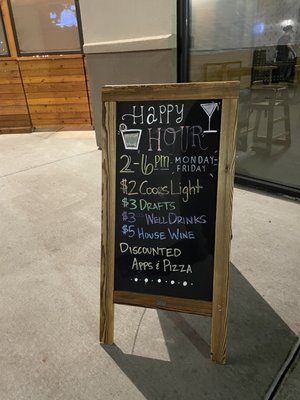 HAPPY
HOUR
2-6PM MONDAY-
FRIDAY
$2 COORS LIGHT
$3 DRAFTS
$3 WELL DRINKS
$5 HOUSE WINE
DISCOUNTED
APPS & PIZZA